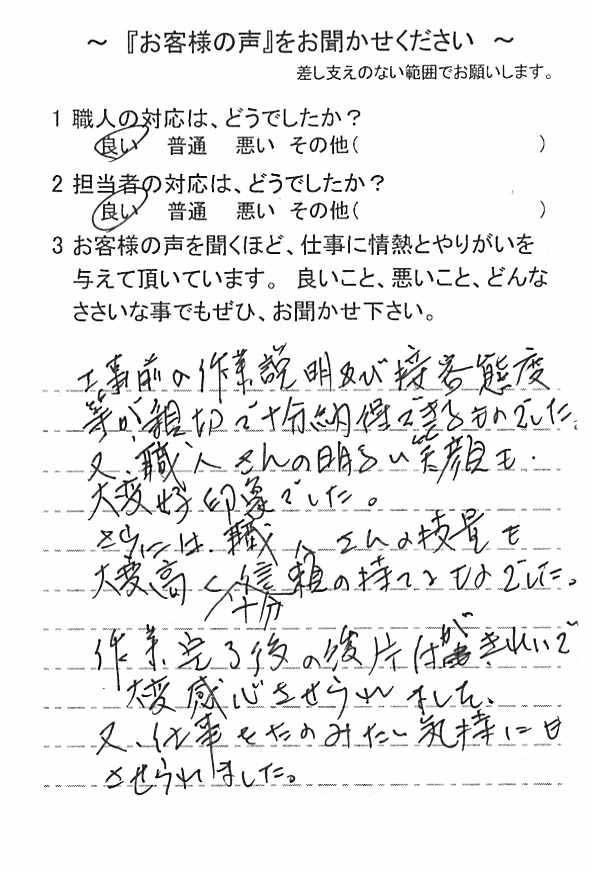 ～ 『お客様の声』をお聞かせください ～
差し支えのない範囲でお願いします。
1 職人の対応は、どうでしたか？
良い 普通 悪い その他( )
2 担当者の対応は、どうでしたか？
良い 普通 悪い その他( )
3 お客様の声を聞くほど、仕事に情熱とやりがいを
与えて頂いています。 良いこと、悪いこと、どんな
ささいな事でもぜひ、お聞かせ下さい。
工事前の作業説明及び接客態度
等が、親切で十分納得できるものでした。
又、職人さんの明るい笑顔も、
大変好印象でした。
さらには、職人さんの技量も
大変高く十分信頼の持てるものでした。
作業完了後の後片付がきれいで
大変感心させられました。
又、仕事をたのみたい気持に
させられました。